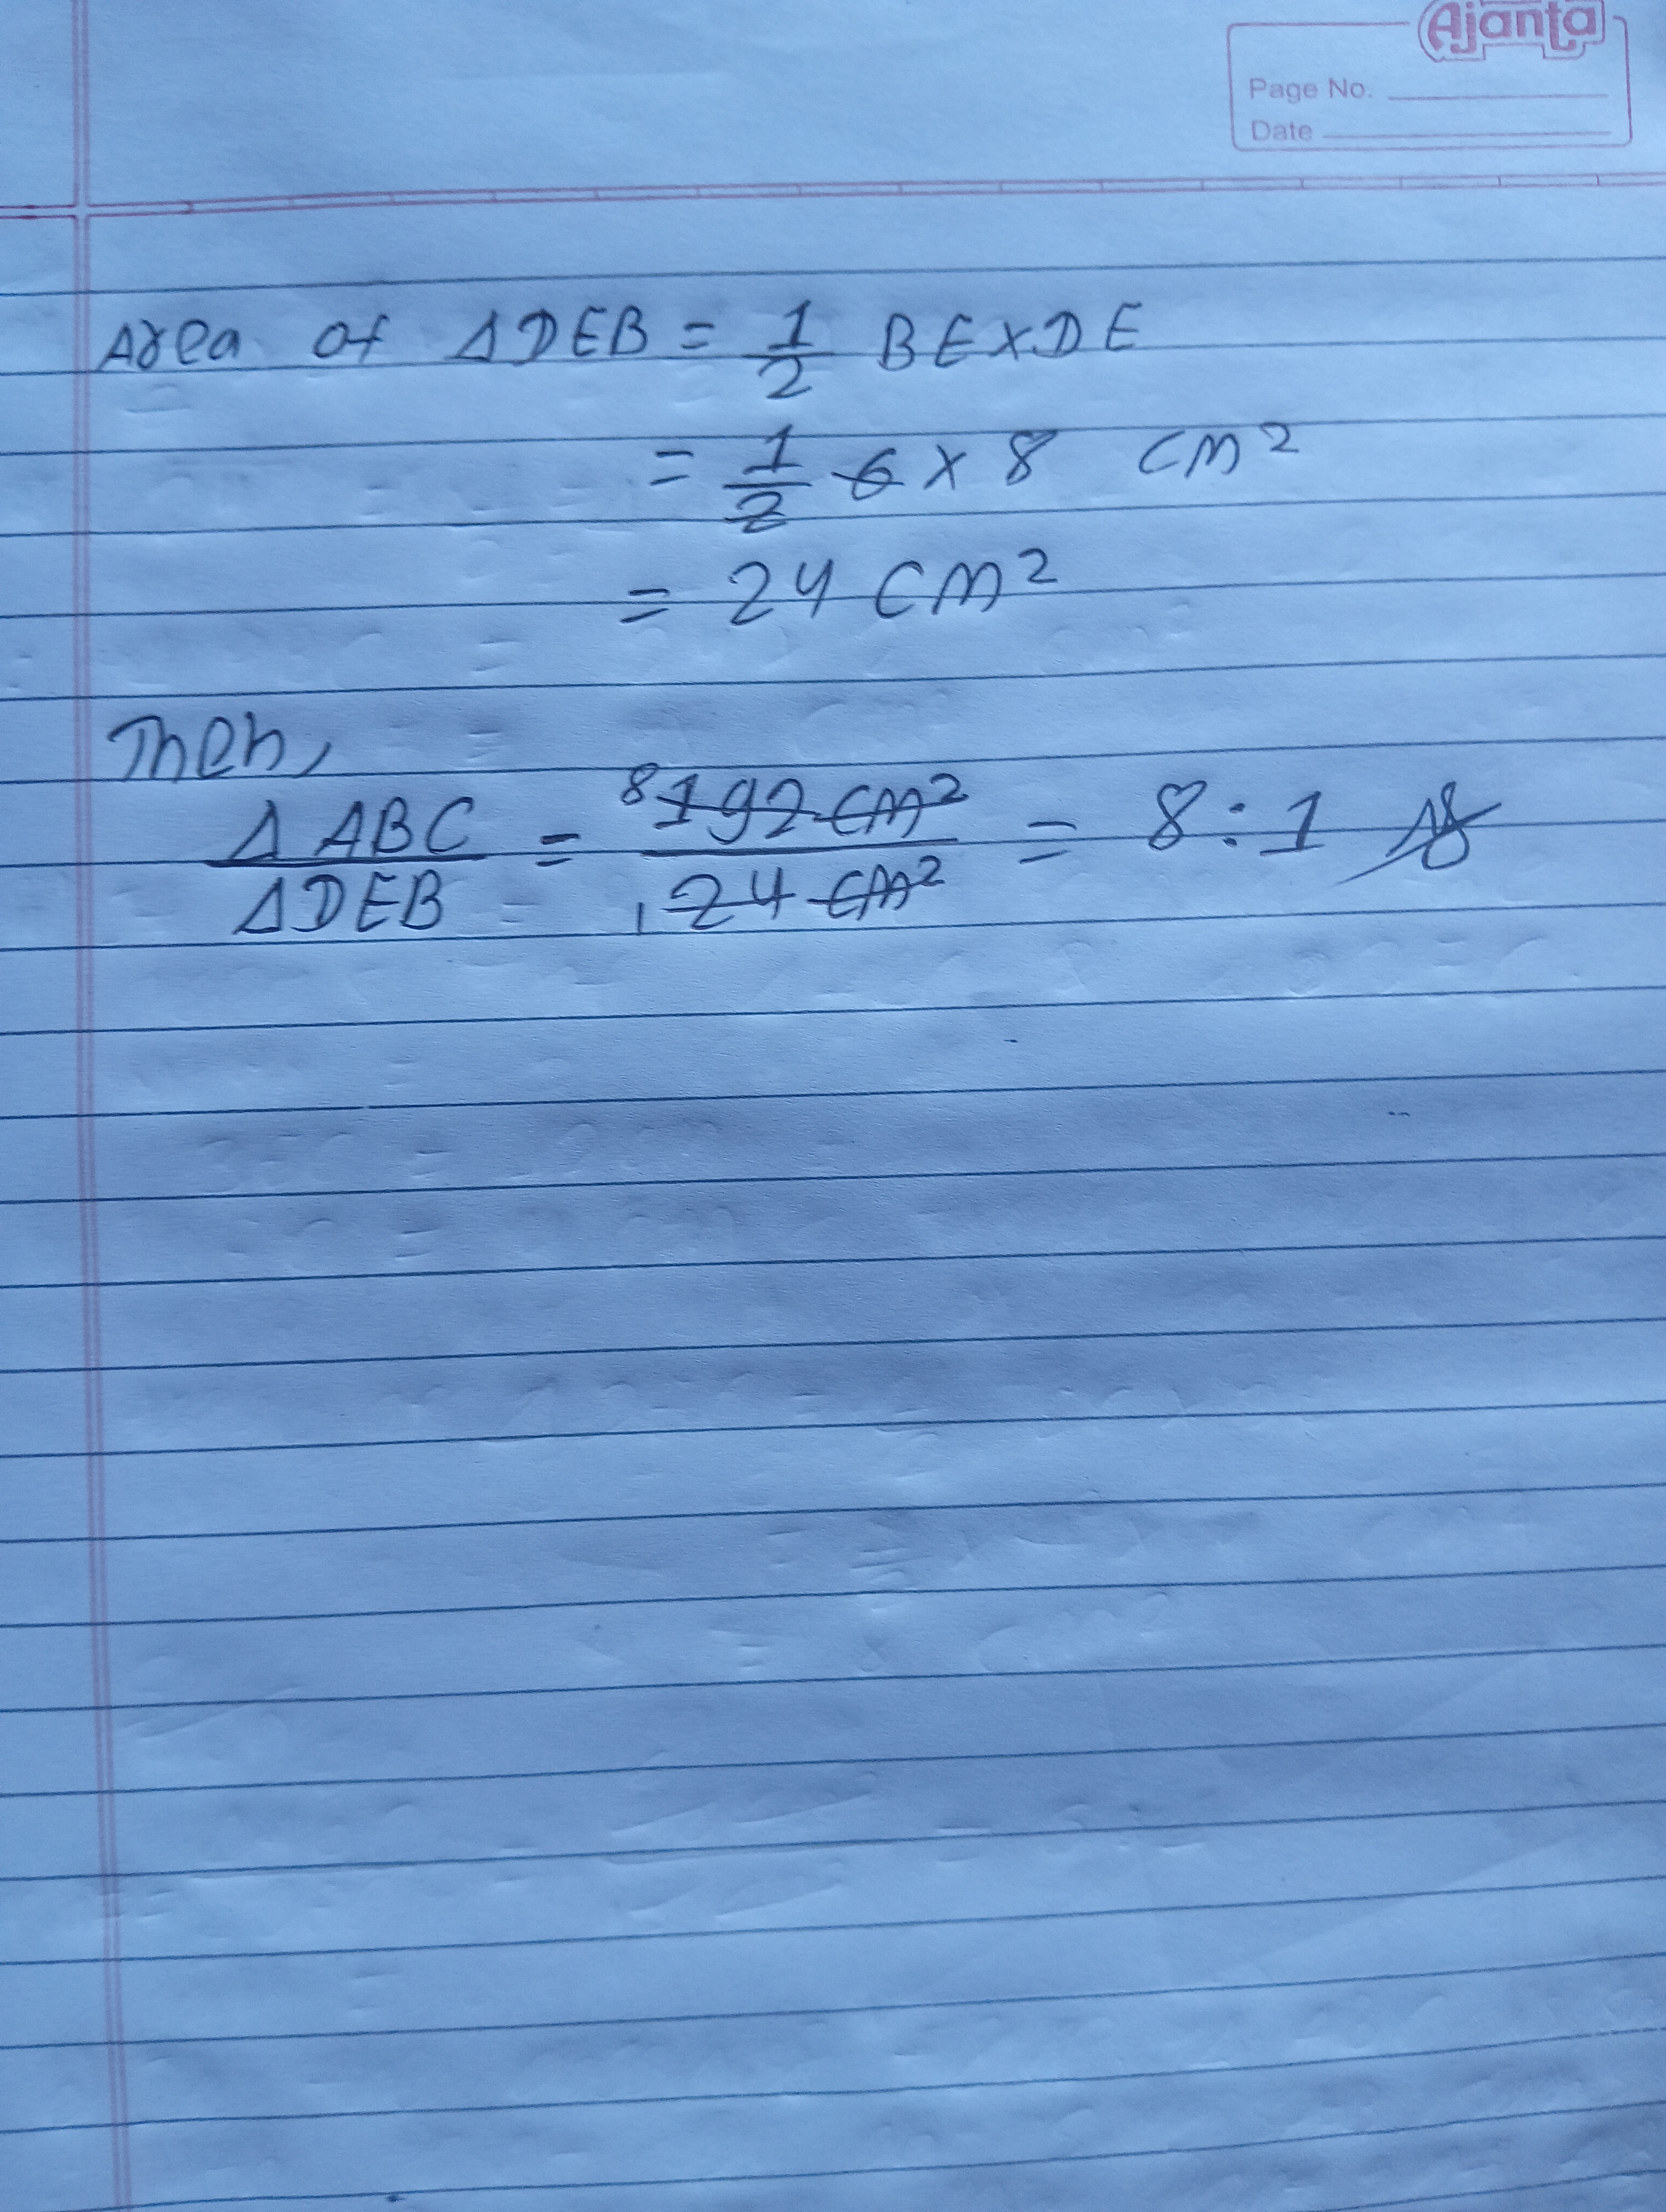 Ajanta
Page No.
Date
Area of ΔDEB = 1/2 BE×DE
= 1/2 6 × 8 cm²
= 24 cm²
Then,
ΔABC/ΔDEB = 8 192 cm²/1 24 cm² = 8:1